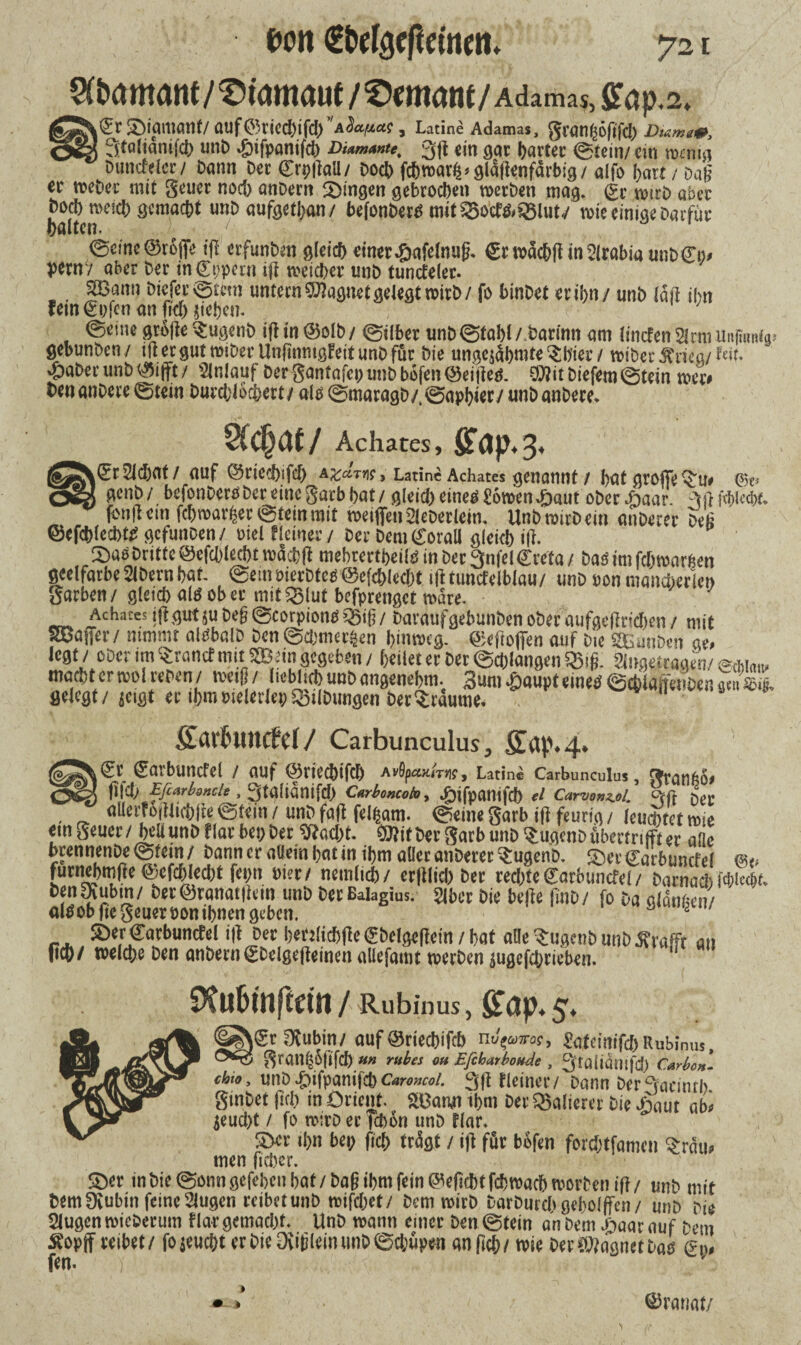 von Edelgesteinen. 721
Adamant/Diamaut/Demant/Adamas, Cap.2.
Er Diamant/ auf Griechisch Ἀδάμας, Latinè Adamas, Frantzösisch Diamant,
Italiänisch und Hispanisch Diamante. Ist ein gar harter Stein/ ein wenig
dunckeler/ dann der Crystall/ doch schwartz-glastenfärbig/ also hart/ daß
er weder mit Feuer noch andern Dingen gebrochen werden mag. Er wird aber
doch weich gemacht und aufgethan/ besonders mit Bocks-Blut/ wie einige darfür
halten.
Seine Grösse ist erfunden gleich einer Haselnuß. Er wächst in Arabia und Cy-
pern/ aber der in Cypern ist weicher und tunckeler.
Wann dieser Stein untern Magnet gelegt wird/ so bindet er ihn/ und läst ihn
kein Eysen an sich ziehen.
Seine gröste Tugend ist in Gold/ Silber und Stahl/ darinn am lincken Arm Unsinnig-
gebunden/ ist er gut wider Unsinnigkeit und für die ungezähmte Thier/ wider Krieg/ keit.
Hader und Gifft/ Anlauf der Fantasey und bösen Geistes. Mit diesem Stein wer-
den andere Stein durchlöchert/ als Smaragd/ Saphier/ und andere.
Achat/ Achates, Cap.3.
Er Achat/ auf Griechisch Ἀχάτης, Latinè Achates genannt/ hat grosse Tu- Ge-
gend/ besonders der eine Farb hat/ gleich eines Löwen Haut oder Haar. Ist schlecht.
sonst ein schwartzer Stein mit weissen Aederlein. Und wird ein anderer deß
Geschlechts gefunden/ viel kleiner/ der dem Corall gleich ist.
Das dritte Geschlecht wächst mehrertheils in der Insel Creta/ das im schwartzen
geelfarbe Adern hat. Sein vierdtes Geschlecht ist tunckelblau/ und von mancherley
Farben/ gleich als ob er mit Blut besprenget wäre.
Achates ist gut zu deß Scorpions Biß/ darauf gebunden oder aufgestrichen/ mit
Wasser/ nimmt alsbald den Schmertzen hinweg. Gestossen auf die Wunden ge-
legt/ oder im Tranck mit Wein gegeben/ heilet er der Schlangen Biß. Angetragen/ Schlan-
macht er wol reden/ weiß/ lieblich und angenehm. Zum Haupt eines Schlaffenden gen Biß.
gelegt/ zeigt er ihm vielerley Bildungen der Träume.
Carbunckel/ Carbunculus, Cap.4.
Er Carbunckel/ auf Griechisch Ἀνθρακίτης, Latinè Carbunculus, Frantzö-
sisch Escarboncle, Italiänisch Carboncolo, Hispanisch el Carvonzol. Ist der
allerköstlichste Stein/ und fast seltzam. Seine Farb ist feurig/ leuchtet wie
ein Feuer/ hell und klar bey der Nacht. Mit der Farb und Tugend übertrifft er alle
brennende Stein/ dann er allein hat in ihm aller anderer Tugend. Der Carbunckel Ge-
fürnehmste Geschlecht seyn vier/ nemlich/ erstlich der rechte Carbunckel/ darnach schlecht.
den Rubin/ der Granatstein und der Balagius. Aber die beste sind/ so da gläntzen/
als ob sie Feuer von ihnen geben.
Der Carbunckel ist der herzlichste Edelgestein/ hat alle Tugend und Krafft an
sich/ welche den andern Edelgesteinen allesamt werden zugeschrieben.
Rubinstein/ Rubinus, Cap.5.
Er Rubin/ auf Griechisch Πύρωπος, Lateinisch Rubinus,
Frantzösisch un rubes ou Escharboude, Italiänisch Carbon-
chio, und Hispanisch Caroncol. Ist kleiner/ dann der Jacinth.
Findet sich in Orient. Wann ihm der Balierer die Haut ab-
zeucht/ so wird er schön und klar.
Der ihn bey sich trägt/ ist für bösen forchtsamen Träu-
men sicher.
Der in die Sonn gesehen hat/ daß ihm sein Gesicht schwach worden ist/ und mit
dem Rubin seine Augen reibet und wischet/ dem wird dardurch geholffen/ und die
Augen wiederum klar gemacht. Und wann einer den Stein an dem Haar auf dem
Kopff reibet/ so zeucht er die Rißlein und Schüpen an sich/ wie der Magnet das Ey-
sen.
Granat/